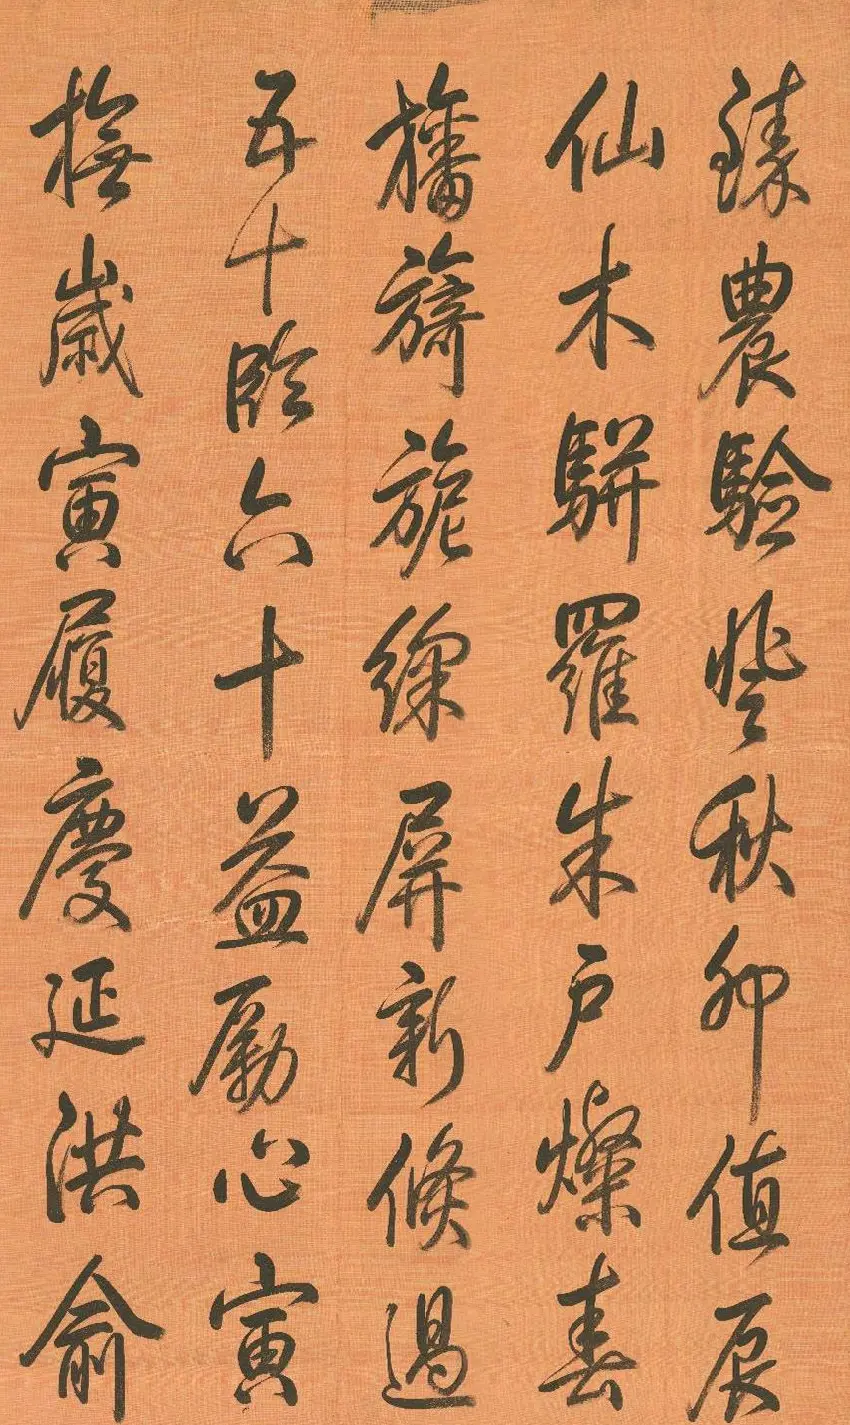 臻農驗登秋卯值辰
仙木駢羅朱戶燦春
旛旖旎綵屏新倏過
五十臨六十益勵心寅
撫歲寅履慶延洪俞